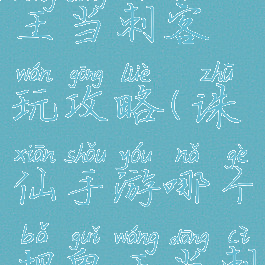 王当刺客
wán gōng lüè zhū
玩攻略(诛
xiān shǒu yóu nǎ gè
仙手游哪个
bǎ guǐ wáng dāng cì